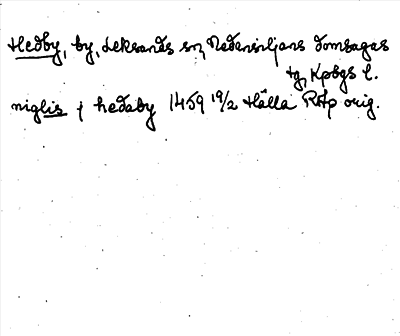 Hedby, by, Leksands sn, Nedansiljans domsagas
tg, Kpbgs l.
niglis j hedaby 1459 19/2 Hälla RAp orig.